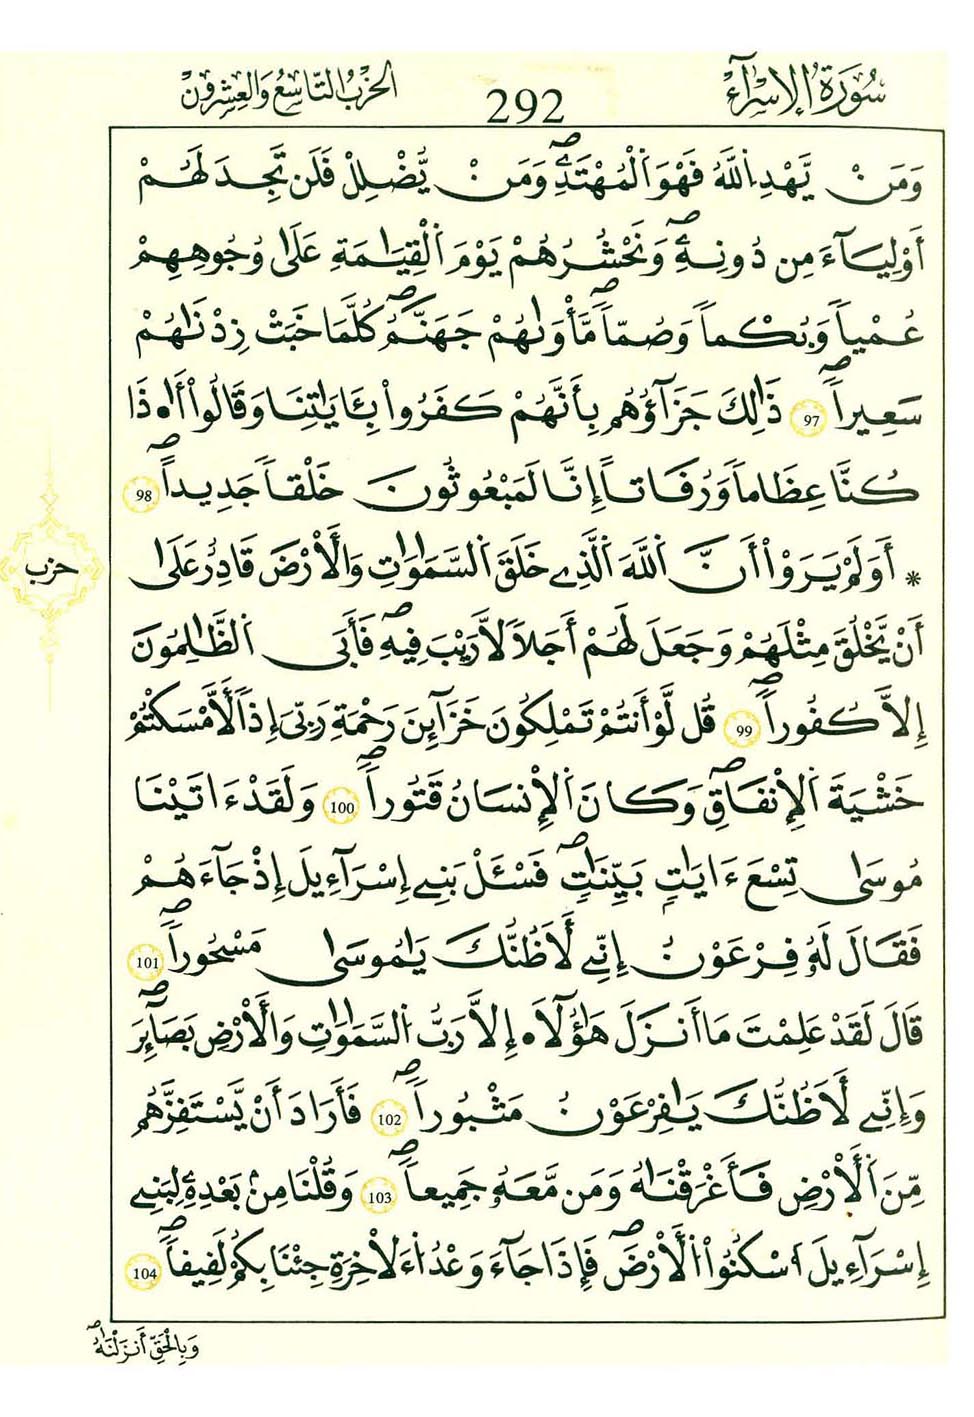 سُورَةُ الإِسْرَآءِ
292
الحِزْبُ التَّاسِعُ وَالعِشْرُونَ
وَمَنْ يَّهْدِ اِ۬للَّهُ فَهْوَ اَ۬لْمُهْتَدِۦۖ وَمَنْ يُّضْلِلْ فَلَن تَجِدَ لَهُمُۥٓ
أَوْلِيَآءَ مِن دُونِهِۦۖ وَنَحْشُرُهُمْ يَوْمَ اَ۬لْقِيَٰمَةِ عَلَىٰ وُجُوهِهِمْ
عُمْياٗ وَبُكْماٗ وَصُمّاٗۖ مَّأْوَىٰهُمْ جَهَنَّمُۖ كُلَّمَا خَبَتْ زِدْنَٰهُمْ
سَعِيراٗۖ 97 ذَٰلِكَ جَزَآؤُهُم بِأَنَّهُمْ كَفَرُواْ بِـَٔايَٰتِنَا وَقَالُوٓاْ أَ۟ذَا
كُنَّا عِظَٰماٗ وَرُفَٰتاً إِنَّا لَمَبْعُوثُونَ خَلْقاٗ جَدِيداًۖ 98
* أَوَلَمْ يَرَوْاْ اَنَّ اَ۬للَّهَ اَ۬لَّذِے خَلَقَ اَ۬لسَّمَٰوَٰتِ وَالْأَرْضَ قَادِرٌ عَلَىٰٓ
أَنْ يَّخْلُقَ مِثْلَهُمْ وَجَعَلَ لَهُمُۥٓ أَجَلاٗ لَّا رَيْبَ فِيهِۖ فَأَبَى اَ۬لظَّٰلِمُونَ
إِلَّا كُفُوراٗۖ 99 قُل لَّوْ اَنتُمْ تَمْلِكُونَ خَزَآئِنَ رَحْمَةِ رَبِّيَ إِذاٗ لَّأَمْسَكْتُمْ
خَشْيَةَ اَ۬لْإِنفَاقِۖ وَكَانَ اَ۬لْإِنسَٰنُ قَتُوراٗۖ 100 وَلَقَدَ اٰتَيْنَا
مُوسَىٰ تِسْعَ ءَايَٰتِۭ بَيِّنَٰتٖۖ فَسْـَٔلْ بَنِےٓ إِسْرَآءِيلَ إِذْ جَآءَهُمْ
فَقَالَ لَهُۥ فِرْعَوْنُ إِنِّے لَأَظُنُّكَ يَٰمُوسَىٰ مَسْحُوراٗۖ 101
قَالَ لَقَدْ عَلِمْتَ مَآ أَنزَلَ هَٰٓؤُلَآءِ اِلَّا رَبُّ اُ۬لسَّمَٰوَٰتِ وَالْأَرْضِ بَصَآئِرَۖ
وَإِنِّے لَأَظُنُّكَ يَٰفِرْعَوْنُ مَثْبُوراٗۖ 102 فَأَرَادَ أَنْ يَّسْتَفِزَّهُم
مِّنَ اَ۬لْأَرْضِ فَأَغْرَقْنَٰهُ وَمَن مَّعَهُۥ جَمِيعاٗۖ 103 وَقُلْنَا مِنۢ بَعْدِهِۦ لِبَنِےٓ
إِسْرَآءِيلَ اَ۟سْكُنُواْ اُ۬لْأَرْضَۖ فَإِذَا جَآءَ وَعْدُ اُ۬لَاخِرَةِ جِئْنَا بِكُمْ لَفِيفاٗۖ 104
حزب
وَبِالْحَقِّ أَنزَلْنَٰهُۖ